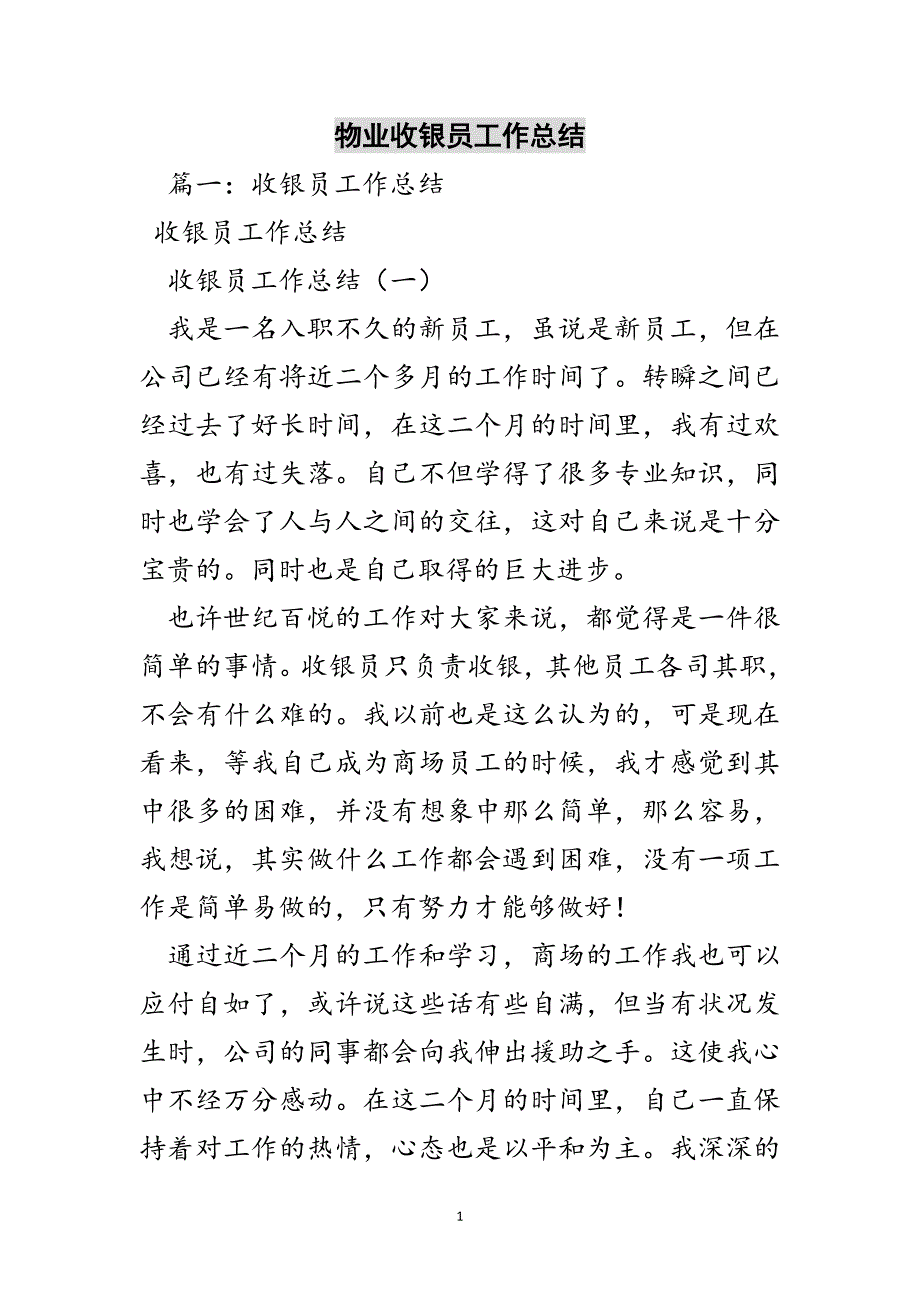 物业收银员工作总结
篇一：收银员工作总结
收银员工作总结
收银员工作总结（一）
我是一名入职不久的新员工，虽说是新员工，但在
公司已经有将近二个多月的工作时间了。转瞬之间已
经过去了好长时间，在这二个月的时间里，我有过欢
喜，也有过失落。自己不但学得了很多专业知识，同
时也学会了人与人之间的交往，这对自己来说是十分
宝贵的。同时也是自己取得的巨大进步。
也许世纪百悦的工作对大家来说，都觉得是一件很
简单的事情。收银员只负责收银，其他员工各司其职，
不会有什么难的。我以前也是这么认为的，可是现在
看来，等我自己成为商场员工的时候，我才感觉到其
中很多的困难，并没有想象中那么简单，那么容易，
我想说，其实做什么工作都会遇到困难，没有一项工
作是简单易做的，只有努力才能够做好！
通过近二个月的工作和学习，商场的工作我也可以
应付自如了，或许说这些话有些自满，但当有状况发
生时，公司的同事都会向我伸出援助之手。这使我心
中不经万分感动。在这二个月的时间里，自己一直保
持着对工作的热情，心态也是以平和为主。我深深的
1